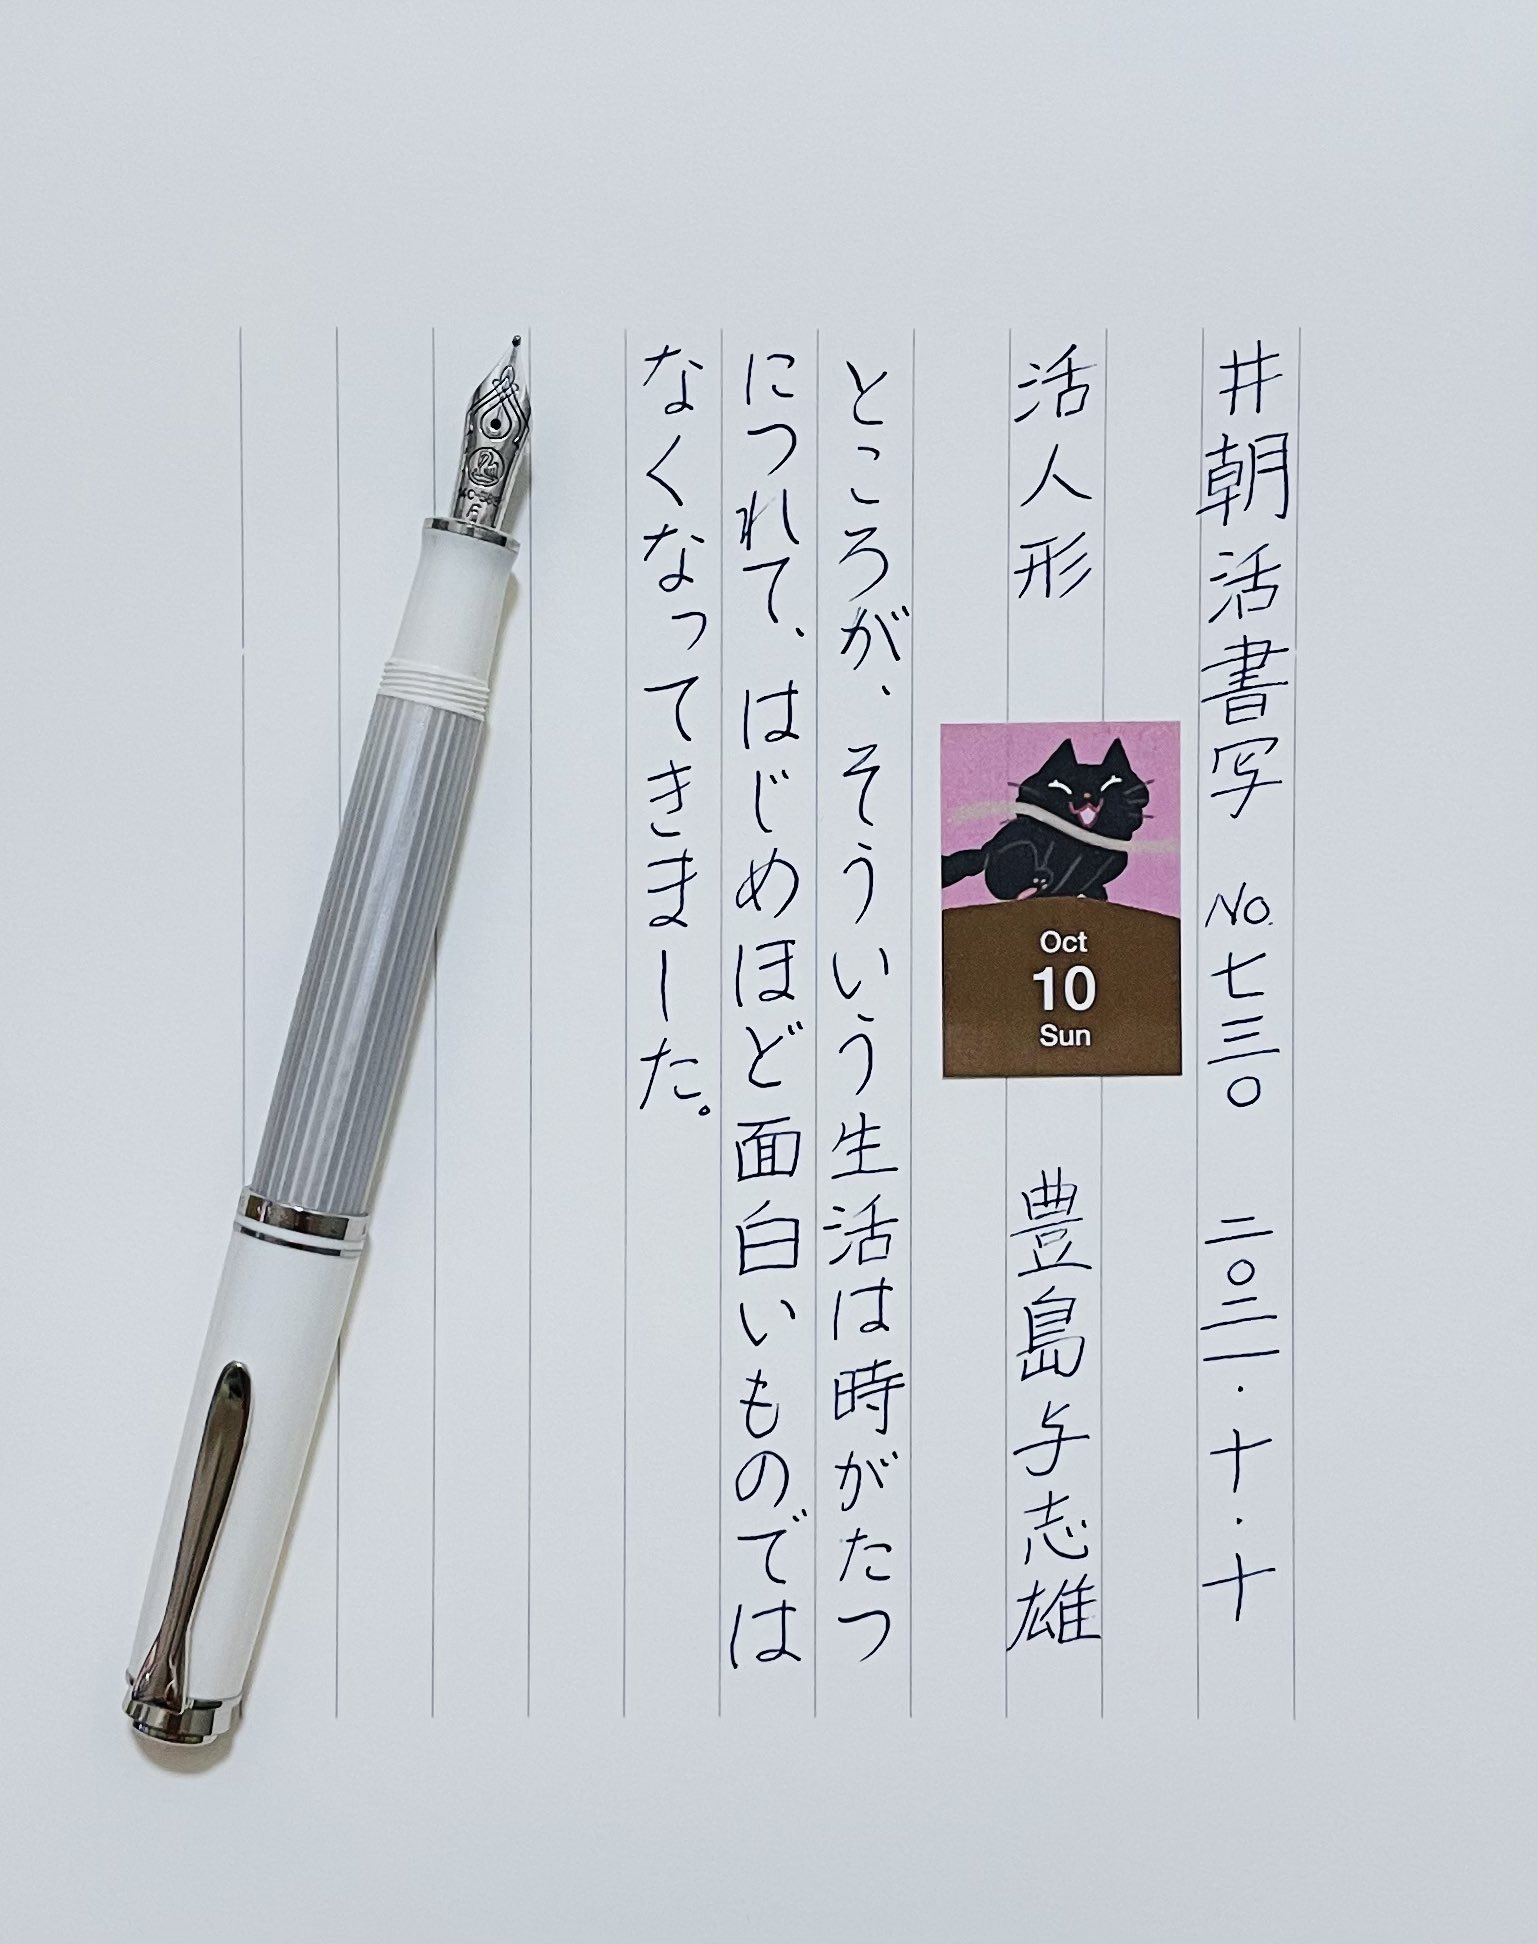 #朝活書写 No.七三〇 二〇二一・十・十
活人形 豊島与志雄
Oct
10
Sun
ところが、そういう生活は時がたつ
につれて、はじめほど面白いものでは
なくなってきました。